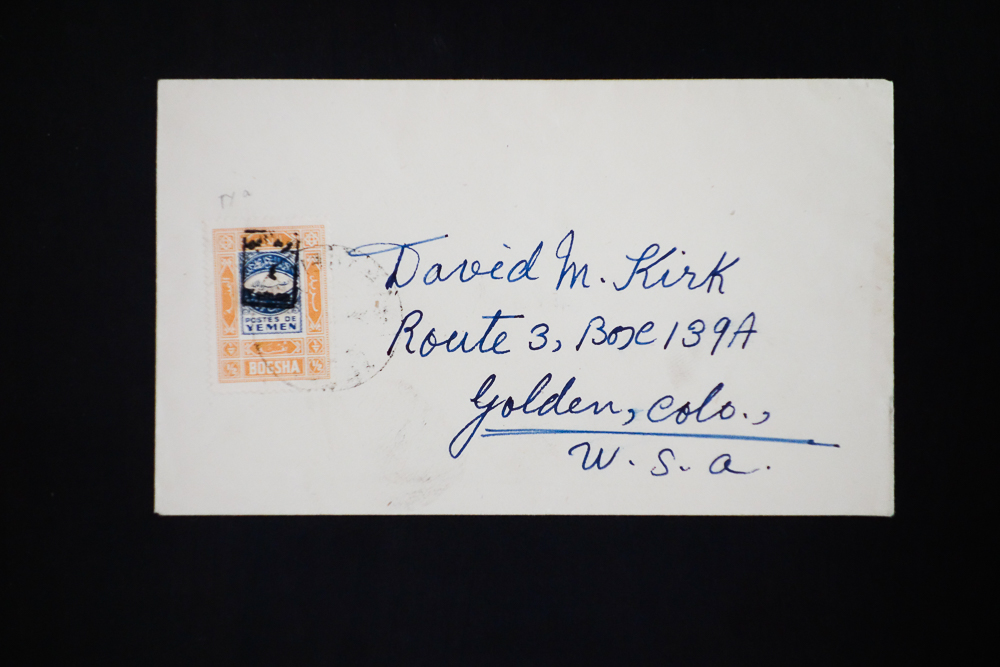 David M. Kirk
Route 3, Box 139A
Golden, Colo.,
U. S. A.
POSTES DE
YEMEN
½ BOGSHA ½